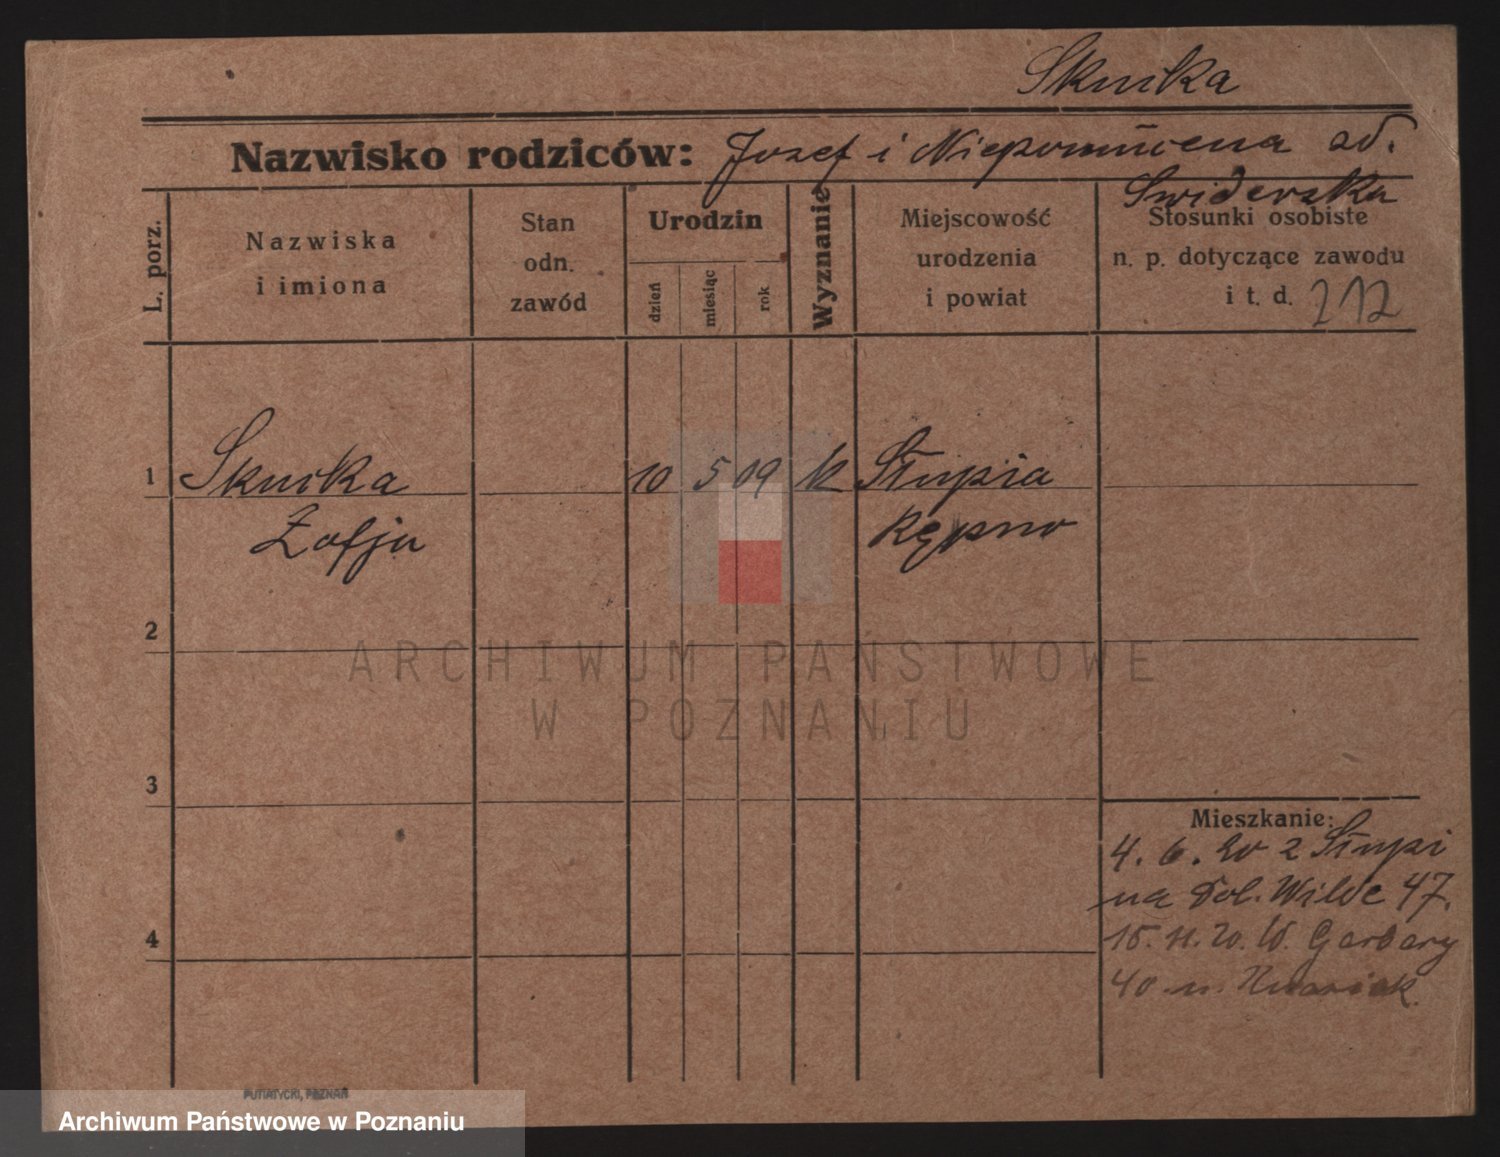 Skurka
Nazwisko rodziców: Jozef i Niepomucena od.
Swiderska
L. porz.
Nazwiska
i imiona
Stan
odn.
zawód
Urodzin
dzień
miesiąc
rok
Wyznanie
Miejscowość
urodzenia
i powiat
Stosunki osobiste
n. p. dotyczące zawodu
i t. d. 212
1 Skurka 10 5 09 k Słupia
Zofja Kępno
2
ARCHIWUM PAŃSTWOWE
W POZNANIU
3
Mieszkanie:
4. 6. 20 z Słupi
na Dol. Wilde 47.
15. 11. 20. W. Garbary
4
40
PUTIATYCKI, POZNAŃ
Archiwum Państwowe w Poznaniu